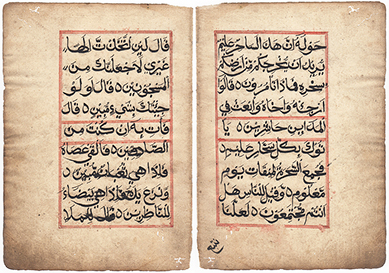 قال لئن اتخذت الها
غيري لاجعلنك من
المسجونين قال اولو
جئتك بشيء مبين قال
فات به ان كنت من
الصدقين فالقى عصاه
فاذا هي ثعبان مبين
ونزع يده فاذا هي بيضاء
للناظرين قال للملا
حوله ان هذا لساحر عليم
يريد ان يخرجكم من ارضكم
بسحره فماذا تامرون قالوا
ارجه واخاه وابعث في
المداين حاشرين يا
توك بكل سحار عليم
فجمع السحرة لميقات يوم
معلوم وقيل للناس هل
انتم مجتمعون لعلنا